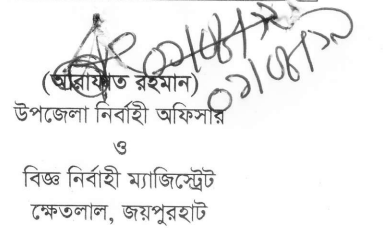 (আরাফাত রহমান)
উপজেলা নির্বাহী অফিসার
ও
বিজ্ঞ নির্বাহী ম্যাজিস্ট্রেট
ক্ষেতলাল, জয়পুরহাট